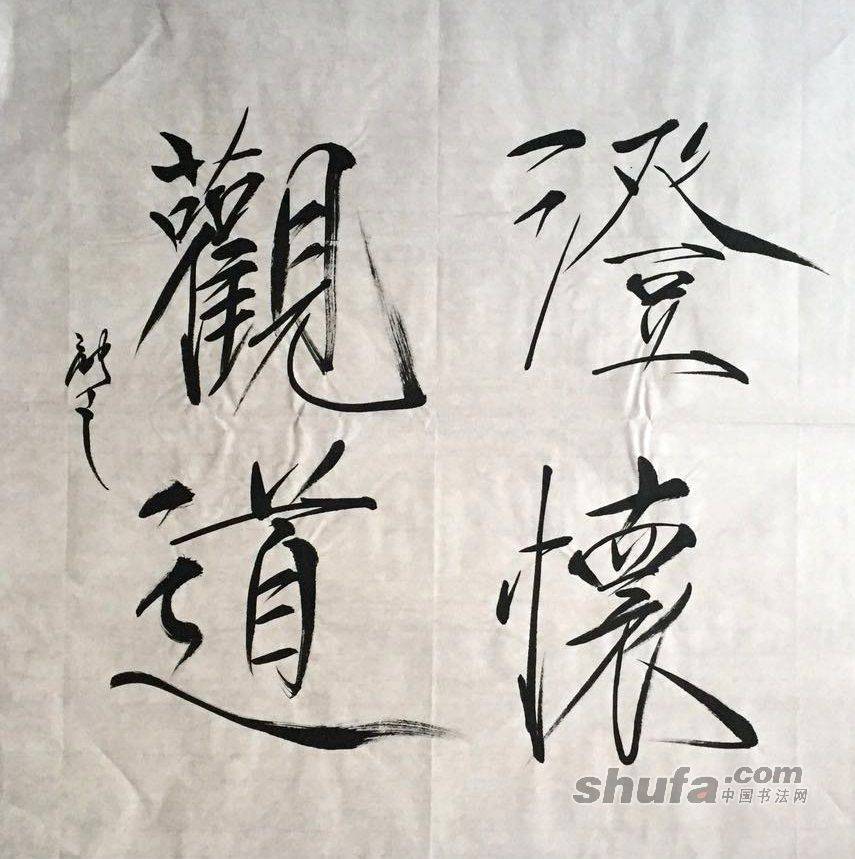 澄懷
觀道
shufa.com
中国书法网